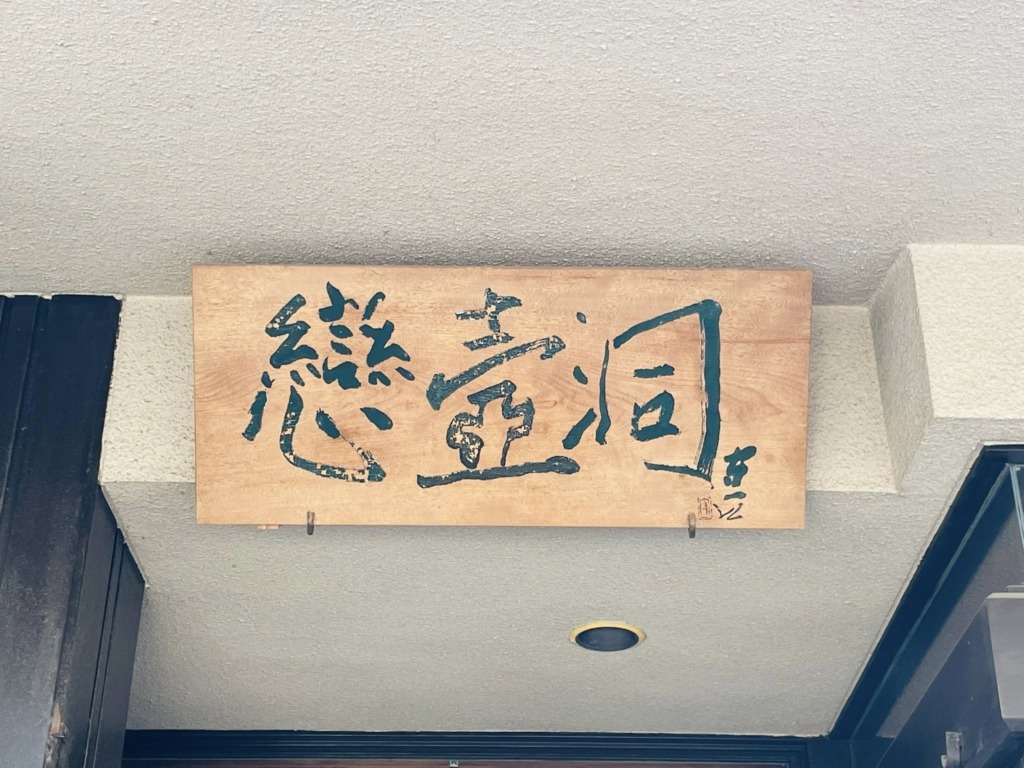 戀壺洞